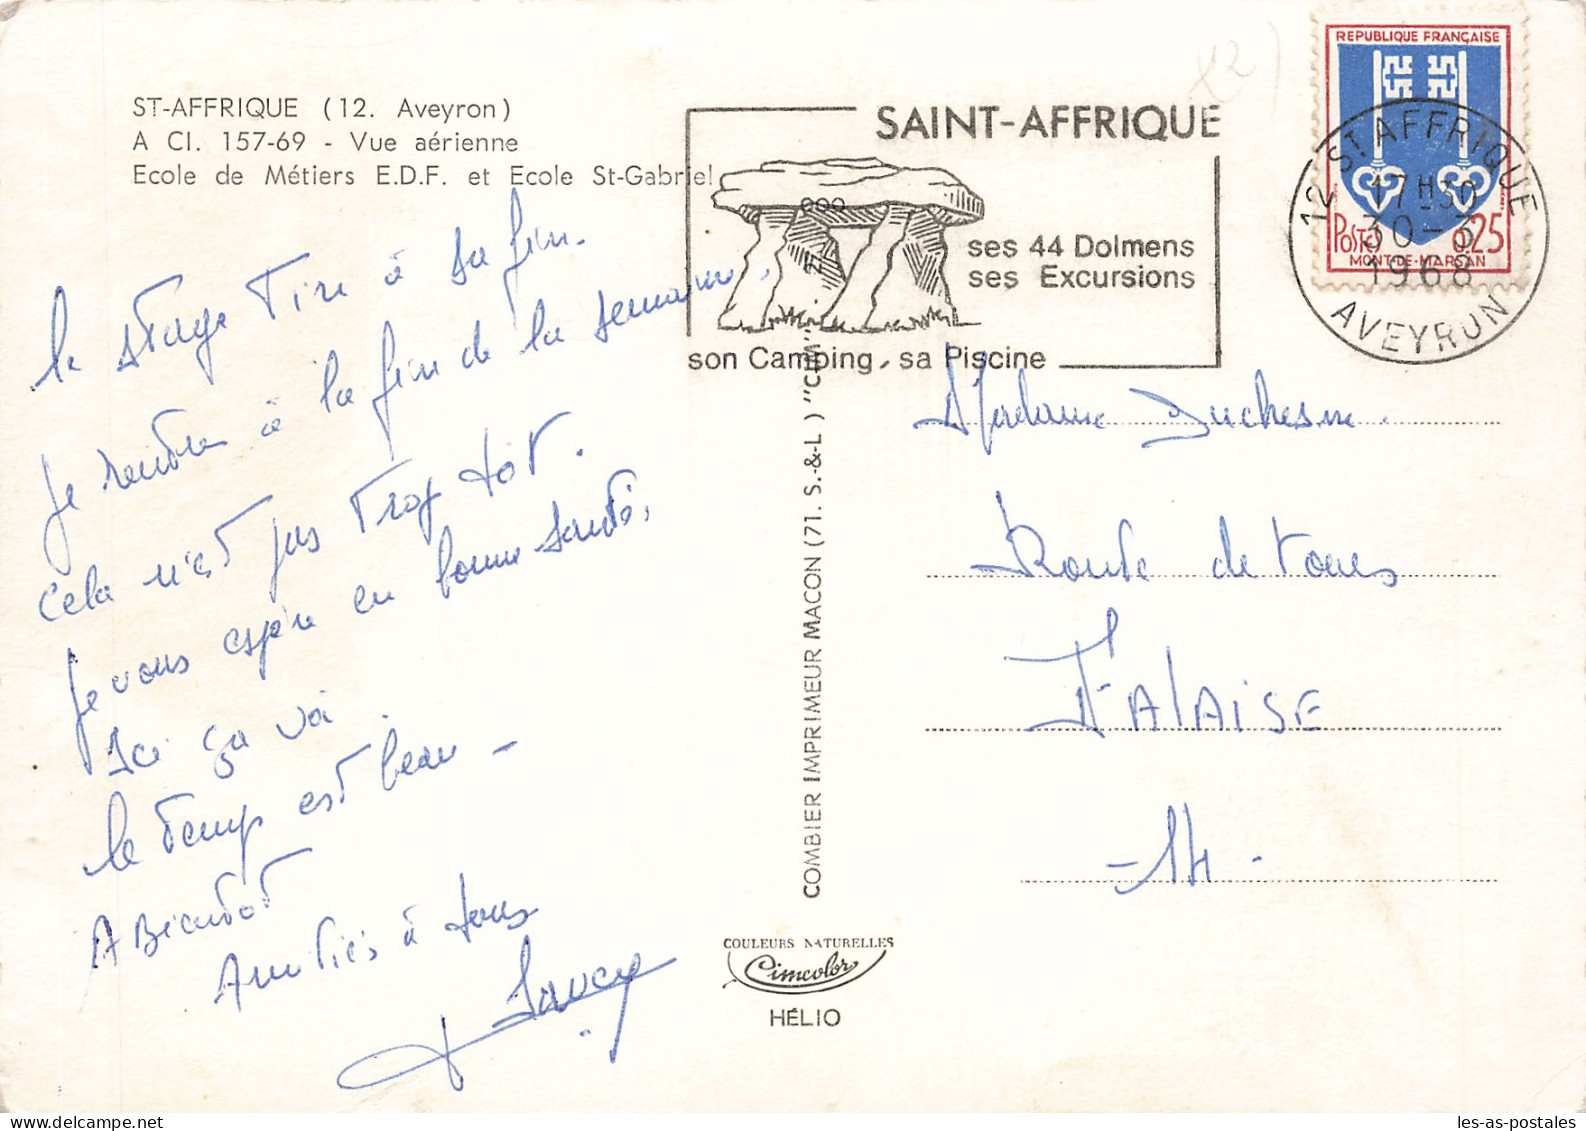 ST-AFFRIQUE (12. Aveyron)
A CI. 157-69 - Vue aérienne
Ecole de Métiers E.D.F. et Ecole St-Gabriel
le stage Tire à sa fin.
Je rentre à la fin de la semaine,
cela n'est pas trop tôt.
Je vous espère en bonne santé,
Ici ça va
le temps est beau -
A Bientôt
Amitiés à tous
SAINT-AFFRIQUE
ses 44 Dolmens
ses Excursions
son Camping, sa Piscine
REPUBLIQUE FRANÇAISE
POSTES 0,25
MONT-DE-MARSAN
12 ST AFFRIQUE
17H30
30-3
1968
AVEYRON
COMBIER IMPRIMEUR MACON (71. S.-&-L.) "CIM"
COULEURS NATURELLES
Cimcolor
HÉLIO
Madame Duchesne.
Route de Tours
FALAISE
- 14 -
les-as-postales
delcampe.net